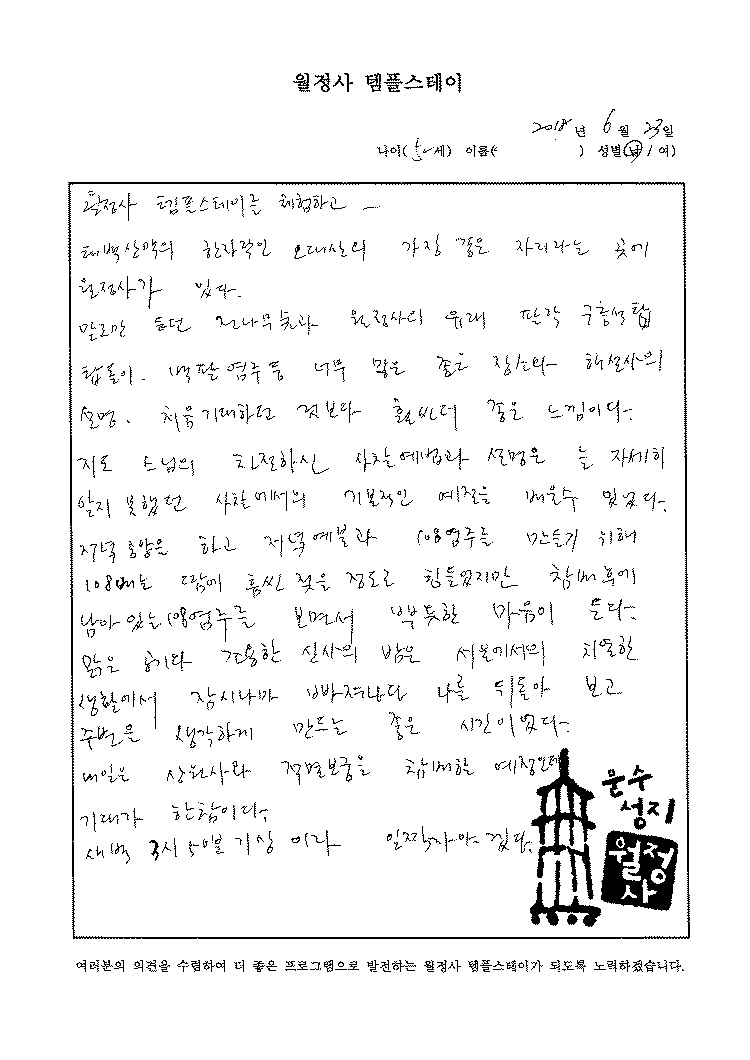 월정사 템플스테이
2018년 6월 23일
나이( 세) 이름( ) 성별(남/여)
월정사 템플스테이를 체험하고 —
태백산맥의 한자락인 오대산의 가장 좋은 자리라는 곳에
월정사가 있다.
말로만 듣던 전나무숲과 월정사의 유래 팔각 구층석탑
탑돌이. 백팔염주 등 너무 많은 좋은 장소와 해설사의
설명. 처음 기대하던 것보다 훨씬더 좋은 느낌이다.
지도 스님의 친절하신 사찰예법과 설명은 늘 자세히
알지 못했던 사찰에서의 기본적인 예절을 배울수 있었다.
저녁 공양을 하고 저녁예불과 108염주를 만들기 위해
108배는 땀에 흠씬 젖을 정도로 힘들었지만 참배후에
남아 있는 108염주를 보면서 뿌듯한 마음이 든다.
맑은 공기와 조용한 산사의 밤은 서울에서의 치열한
생활에서 잠시나마 빠져나와 나를 뒤돌아 보고
주변을 생각하게 만드는 좋은 시간이었다.
내일은 상원사와 적멸보궁을 참배할 예정인데
기대가 한참이다.
새벽 3시 50분 기상 이라 일찍자야 겠다.
문수
성지
월정
사
여러분의 의견을 수렴하여 더 좋은 프로그램으로 발전하는 월정사 템플스테이가 되도록 노력하겠습니다.